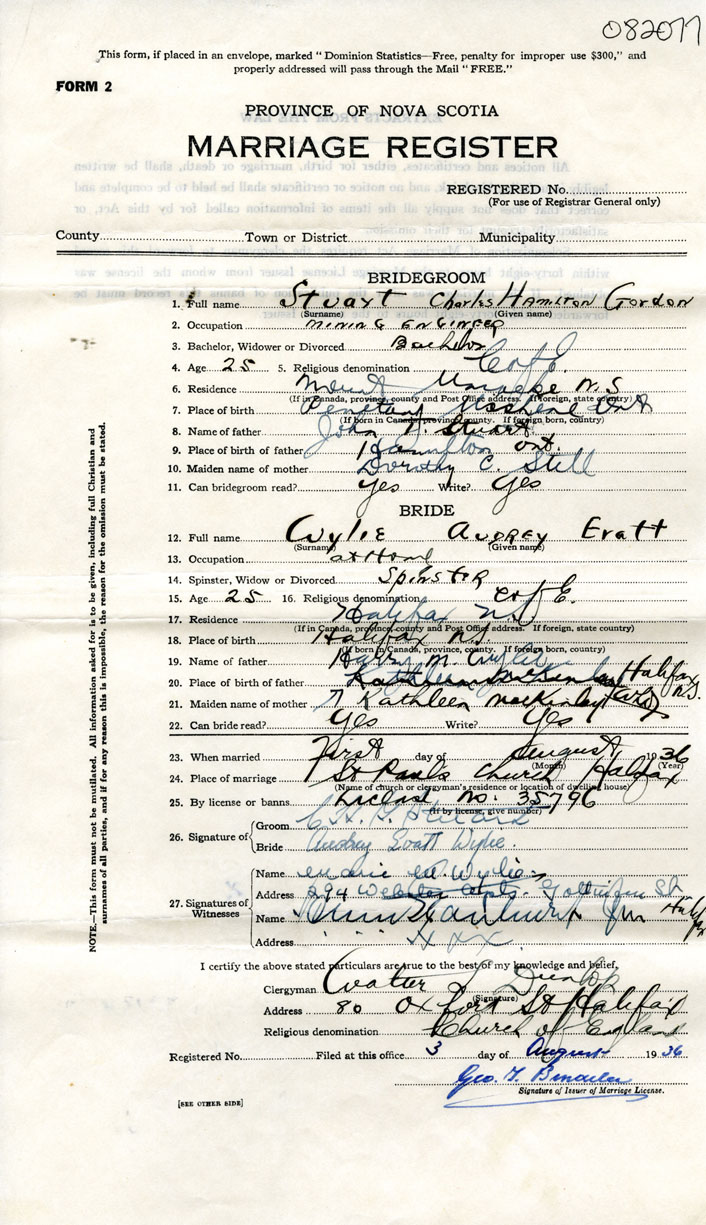 082077
This form, if placed in an envelope, marked "Dominion Statistics—Free, penalty for improper use $300," and
properly addressed will pass through the Mail "FREE."
FORM 2
PROVINCE OF NOVA SCOTIA
MARRIAGE REGISTER
REGISTERED No.
(For use of Registrar General only)
County Town or District Municipality
BRIDEGROOM
1. Full name Stuart Charles Hamilton Gordon
(Surname) (Given name)
2. Occupation mining engineer
3. Bachelor, Widower or Divorced Bachelor
4. Age 25 5. Religious denomination C of E.
6. Residence Mount Uniacke N.S
(If in Canada, province, county and Post Office address. If foreign, state country)
7. Place of birth Ont
(If born in Canada, province, county. If foreign born, country)
8. Name of father John Stuart
9. Place of father's birth Hampton Ont.
10. Maiden name of mother Dorothy C. Still
11. Can bridegroom read? Yes Write? Yes
BRIDE
12. Full name Wylie Audrey Evatt
(Surname) (Given name)
13. Occupation at Home
14. Spinster, Widow or Divorced Spinster
15. Age 25 16. Religious denomination C of E.
17. Residence Halifax N.S
(If in Canada, province, county and Post Office address. If foreign, state country)
18. Place of birth Halifax N.S
(If born in Canada, province, county. If foreign born, country)
19. Name of father Harry M. Wylie
20. Place of birth of father Halifax N.S.
21. Maiden name of mother Kathleen MacKinlay
22. Can bride read? Yes Write? Yes
23. When married First day of August, 1936
(Month) (Year)
24. Place of marriage St Paul's Church Halifax
(Name of church or clergyman's residence or location of dwelling house)
25. By license or banns License No: 35796
(If by license, give number)
26. Signature of Groom C. H. G. Stuart
Bride Audrey Evatt Wylie.
27. Signatures of Witnesses
Name Wylie
Address 294 Gottingen St Halifax
Name Jnr
Address " " "
I certify the above stated particulars are true to the best of my knowledge and belief,
Clergyman Walter Dunlop
(Signature)
Address 80 Oxford St Halifax
Religious denomination Church of England
Registered No. Filed at this office 3 day of August 1936
Geo. F.
Signature of Issuer of Marriage License.
[SEE OTHER SIDE]
NOTE.—This form must not be mutilated. All information asked for is to be given, including full Christian and
surnames of all parties, and if for any reason this is impossible, the reason for the omission must be stated.